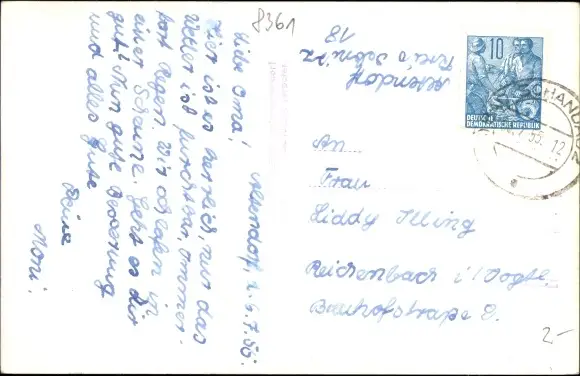 8361
Altendorf, d. 6.7.55.
Liebe Oma!
Hier ist es herrlich, nur das
Wetter ist furchtbar, immer-
fort Regen. Wir schlafen in
einer Scheune. Geht es Dir
gut? Nun gute Besserung
und alles Gute
Deine
Moni.
Altendorf
Krs. Sebnitz
18
10
DEUTSCHE
DEMOKRATISCHE REPUBLIK
SCHANDAU
An
Frau
Liddy Illing
Reichenbach i/Vogtl.
Bahnhofstraße 2.
2-